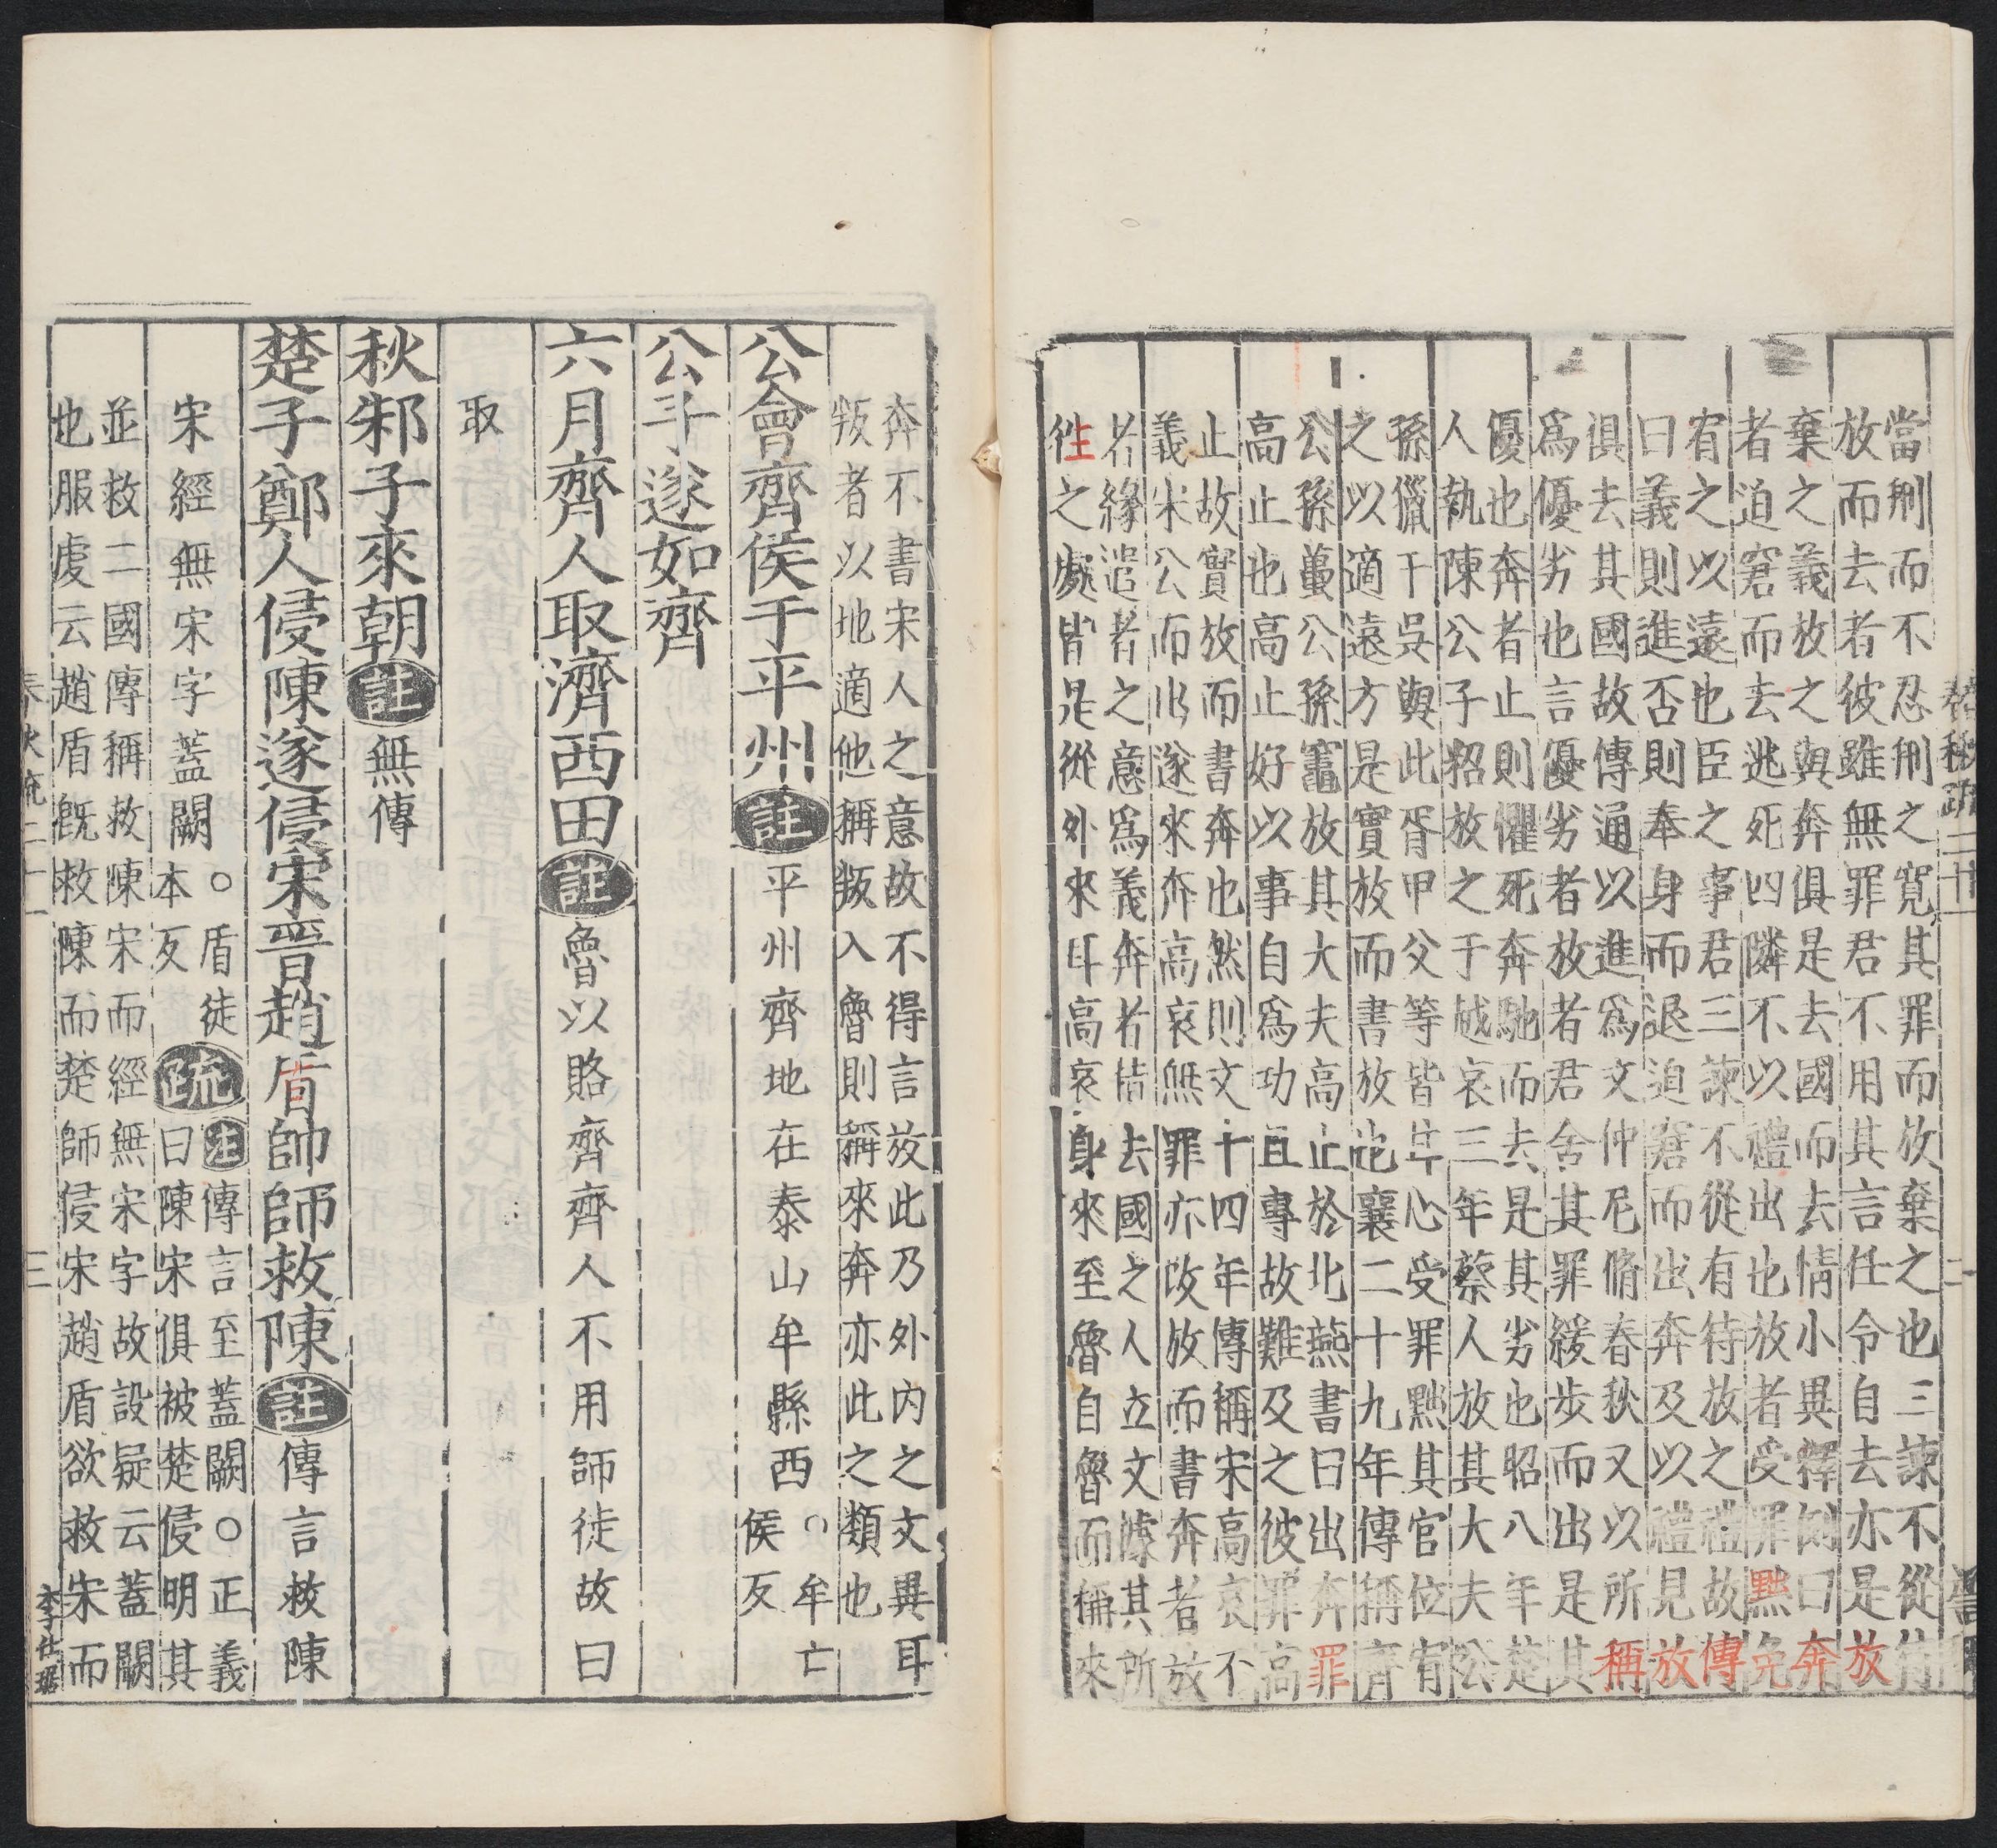 春秋疏二十一
二
當刑而不忍刑之寬其罪而放棄之也三諫不從待
放而去者彼雖無罪君不用其言任令自去亦是放
棄之義放之與奔俱是去國而去情小異釋例曰奔
者迫窘而去逃死四隣不以禮出也放者受罪黜免
宥之以遠也臣之事君三諫不從有待放之禮故傳
曰義則進否則奉身而退迫窘而出奔及以禮見放
俱去其國故傳通以進爲文仲尼脩春秋又以所稱
爲優劣也言優劣者放者君舍其罪緩步而出是其
優也奔者止則懼死奔馳而去是其劣也昭八年楚
人執陳公子招放之于越哀三年蔡人放其大夫公
孫獵于吳與此胥甲父等皆甘心受罪黜其官位宥
之以適遠方是實放而書放也襄二十九年傳稱齊
公孫蠆公孫竈放其大夫高止於北燕書曰出奔罪
高止也高止好以事自爲功且專故難及之彼罪高
止故實放而書奔也然則文十四年傳稱宋高哀不
義宋公而出遂來奔高哀無罪亦改放而書奔者放
者緣遣者之意爲義奔者指去國之人立文據其所
往之處皆是從外來耳高哀身來至魯自魯而稱來
奔不書宋人之意故不得言放此乃外内之文異耳
叛者以地適他稱叛入魯則稱來奔亦此之類也
公會齊侯于平州註平州齊地在泰山牟縣西○牟亡
侯反
公子遂如齊
六月齊人取濟西田註魯以賂齊齊人不用師徒故曰
取
秋邾子來朝註無傳
楚子鄭人侵陳遂侵宋晋趙盾帥師救陳註傳言救陳
宋經無宋字蓋闕○盾徒
本反疏注傳言至蓋闕○正義
曰陳宋俱被楚侵明其
並救二國傳稱救陳宋而經無宋字故設疑云蓋闕
也服虔云趙盾旣救陳而楚師侵宋趙盾欲救宋而
春秋疏二十一
三
李仕琚